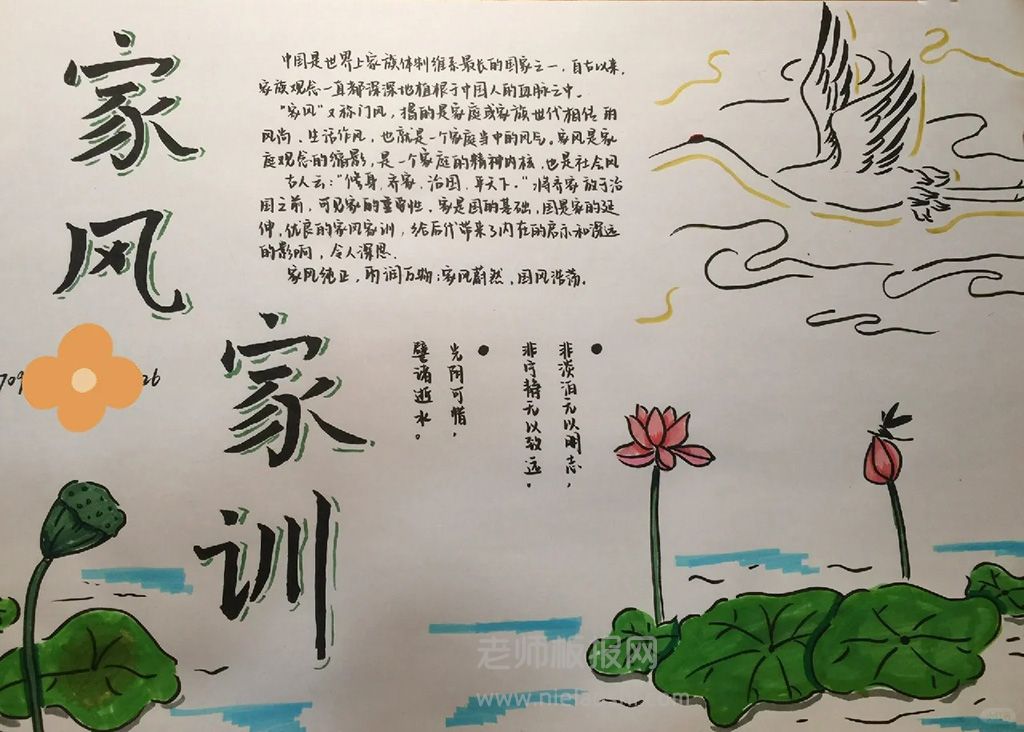 家风
家训
中国是世界上家族体制维系最长的国家之一，自古以来，
家族观念一直都深深地植根于中国人的血脉之中。
“家风”又称门风，指的是家庭或家族世代相传的
风尚、生活作风，也就是一个家庭当中的风气。家风是家
庭观念的缩影，是一个家庭的精神内核，也是社会风
古人云：“修身，齐家，治国，平天下。”将齐家放于治
国之前，可见家的重要性，家是国的基础，国是家的延
伸，优良的家风家训，给后代带来了内在的启示和深远
的影响，令人深思.
家风纯正，雨润万物；家风蔚然，国风浩荡.
非淡泊无以明志，
非宁静无以致远。
光阴可惜，
譬诸逝水。
老师板报网